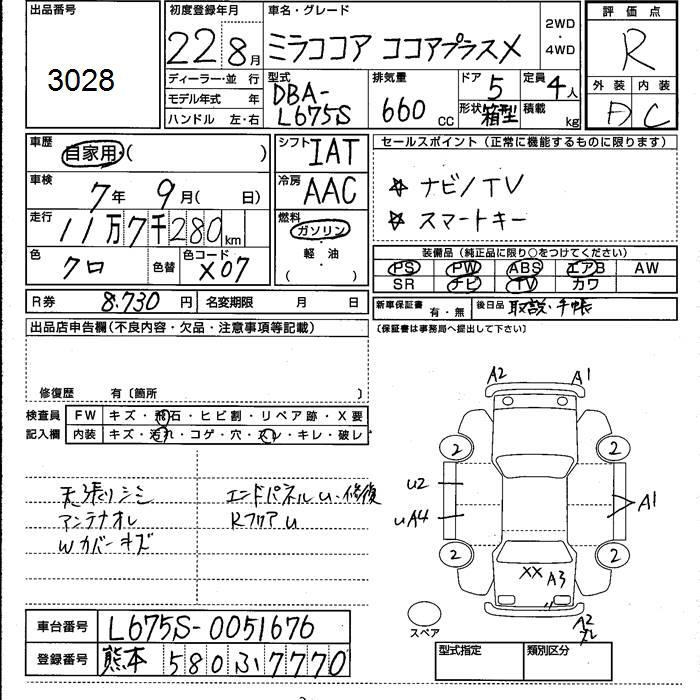 出品番号 初度登録年月 車名・グレード 2WD・4WD 評価点
3028 22年8月 ミラココア ココアプラスX R
ディーラー・並行 型式 排気量 ドア 定員 外装 内装
モデル年式 年 DBA-L675S 660cc 5 4人 D C
ハンドル 左・右 形状 箱型 積載 kg
車歴 自家用・( ) シフト IAT セールスポイント(正常に機能するものに限ります)
車検 7年 9月( 日) 冷房 AAC ☆ ナビ/TV
走行 11万7千280km 燃料 ガソリン・軽油 ( ) ☆ スマートキー
色 クロ 色替 色コード X07 装備品(純正品に限り○をつけてください)
PS PW ABS エアB AW
SR ナビ TV カワ
R券 8.730円 名変期限 月 日 新車保証書 有・無 後日品 取説・手帳
出品店申告欄(不良内容・欠品・注意事項等記載) 〔保証書は事務局へ提出して下さい〕
修復歴 有〔箇所 〕
検査員 FW キズ・飛石・ヒビ割・リペア跡・X要
記入欄 内装 キズ・汚れ・コゲ・穴・スレ・キレ・破レ
天張りシミ エンドパネルU・修復
アンテナオレ RフロアU
Wカバーキズ
A2 A1
2 2
U2
UA4 A1
2 2
XX A3
スペア A2
車台番号 L675S-0051676
登録番号 熊本 580 ふ 7770 型式指定 類別区分